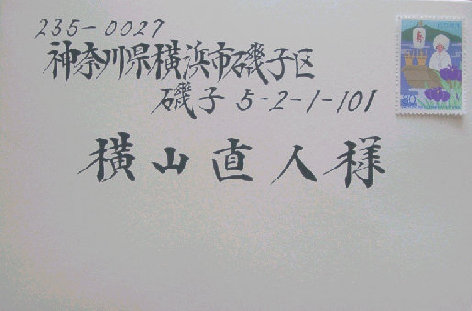 235-0027
神奈川県横浜市磯子区
磯子 5-2-1-101
横山直人様